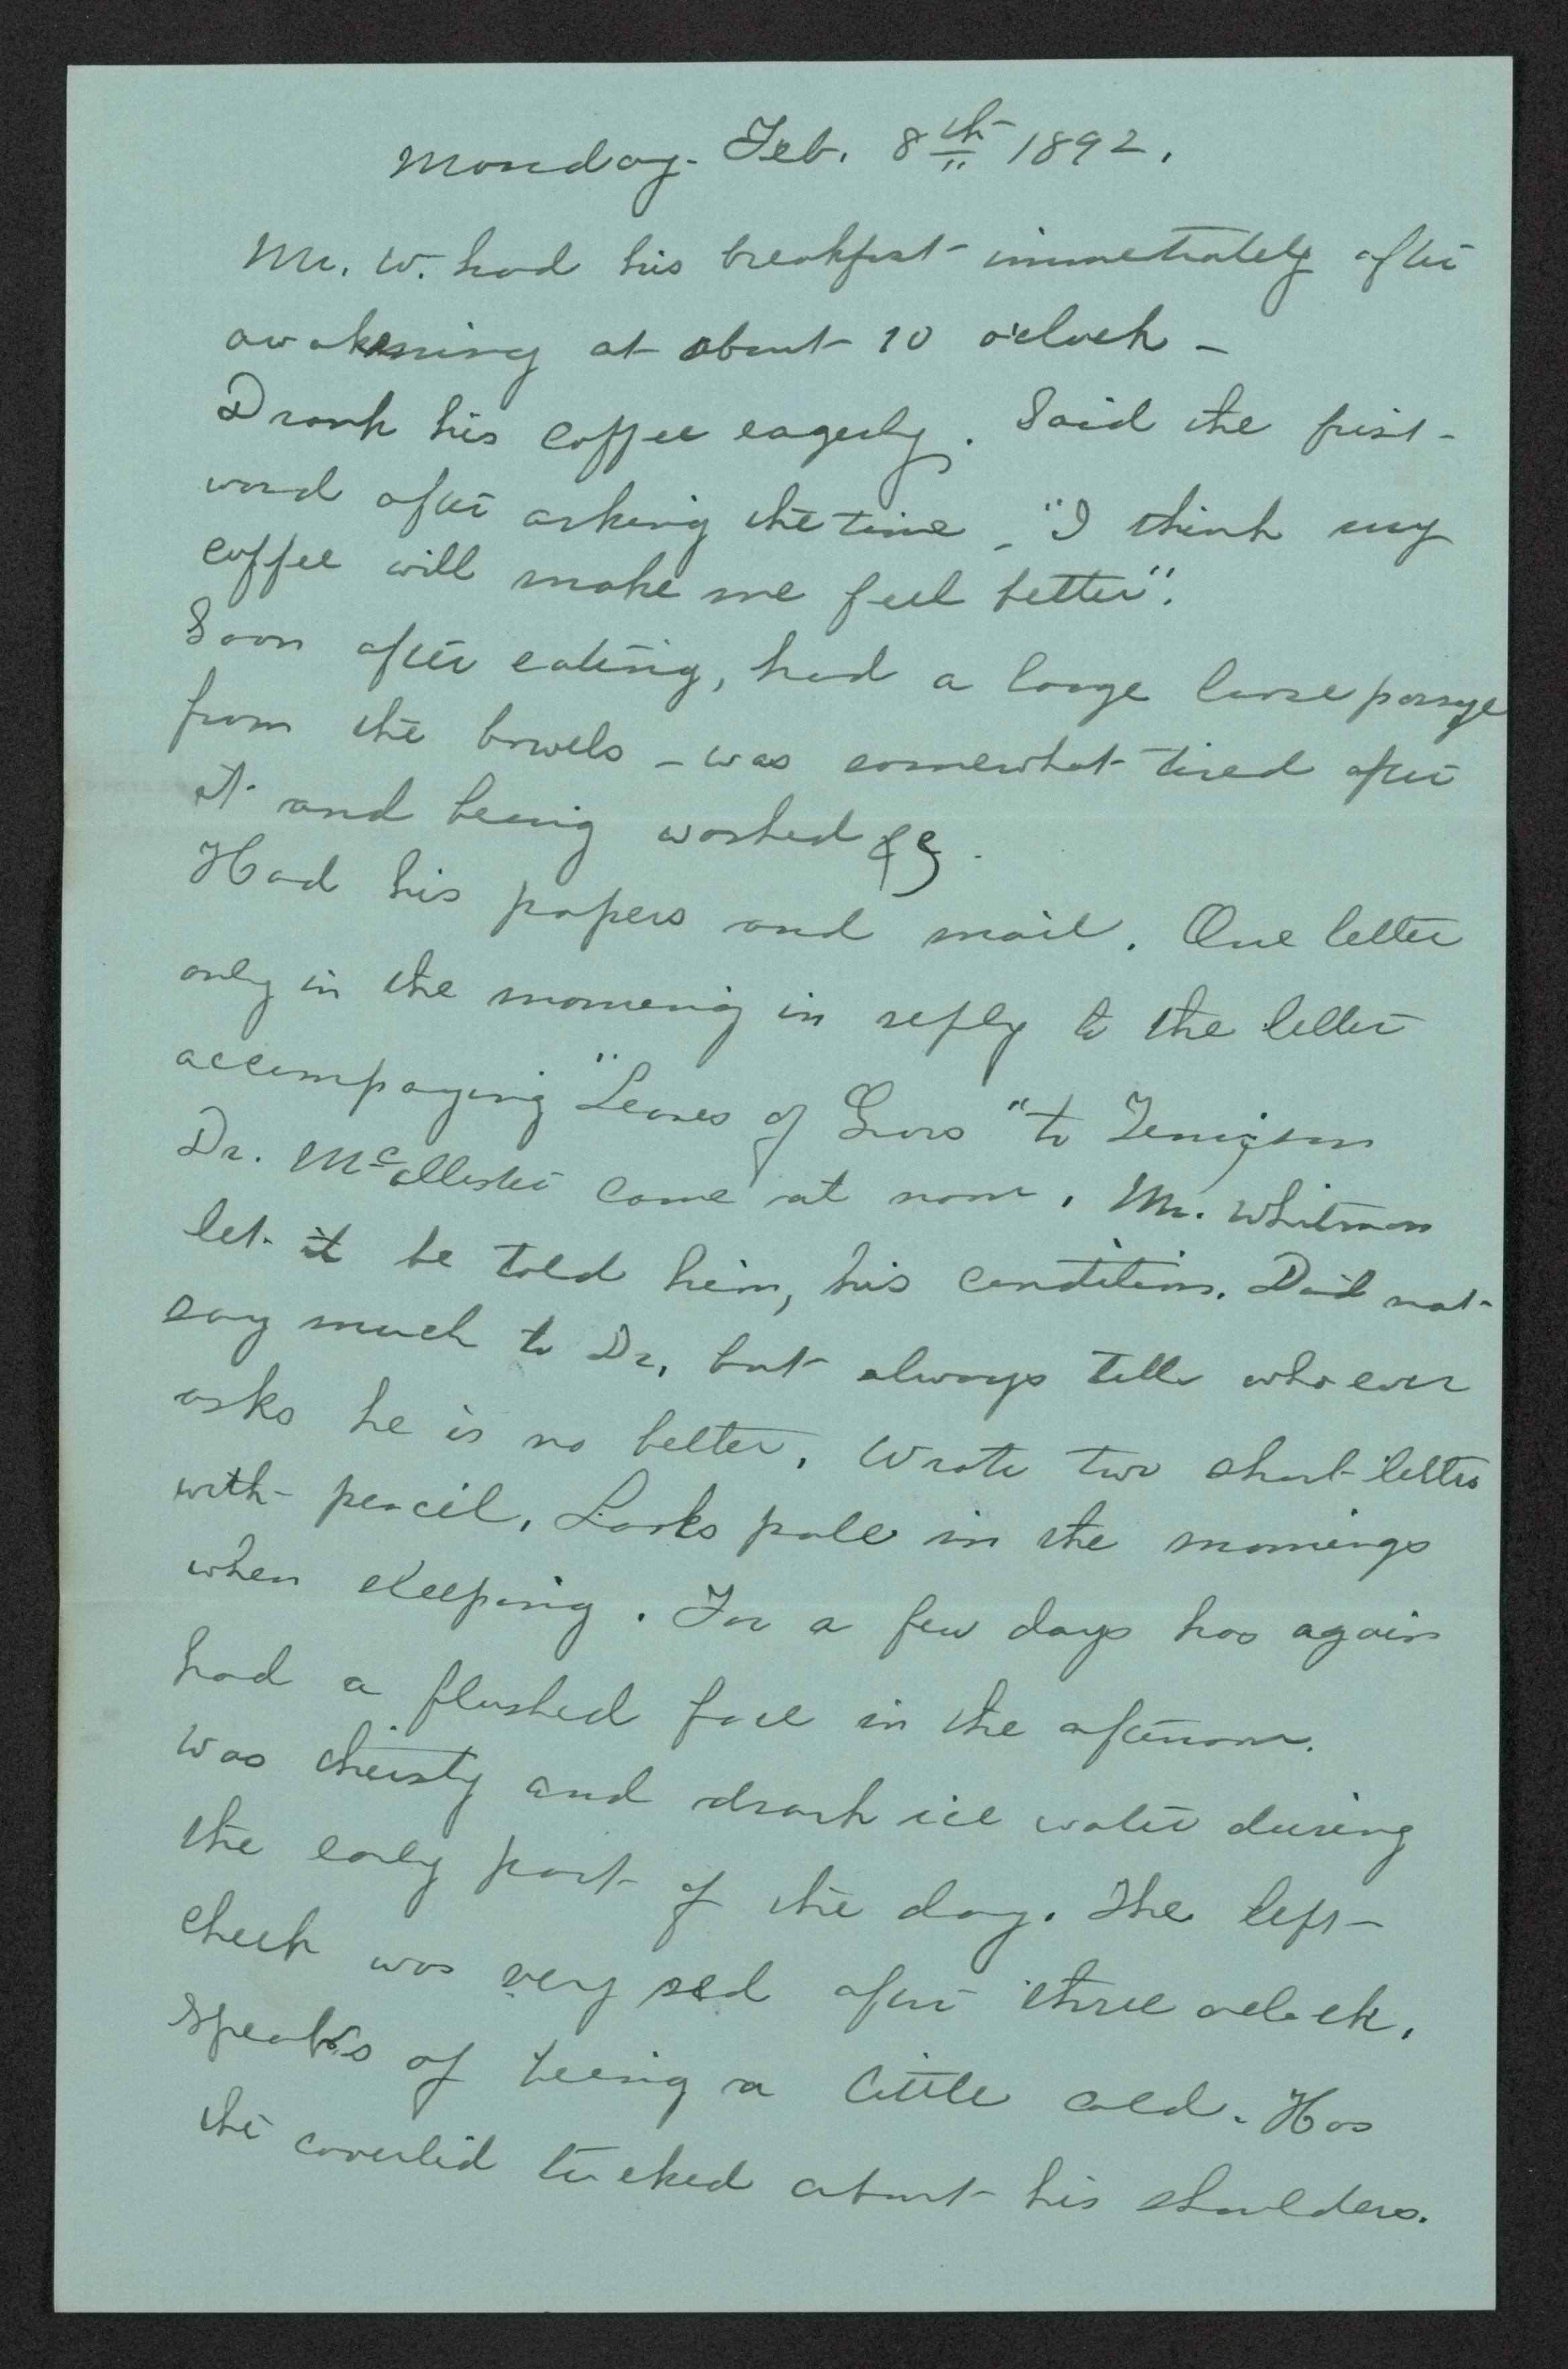 Monday. Feb. 8th 1892.
Mr. W. had his breakfast immediately after
awakening at about 10 o'clock –
Drank his coffee eagerly. Said the first
word after asking the time – "I think my
coffee will make me feel better".
Soon after eating, had a large loose passage
from the bowels – was somewhat tired after
it and being washed &c.
Had his papers and mail. One letter
only in the morning in reply to the letter
accompaying "Leaves of Grass" to Tennyson
Dr. McAllister came at noon. Mr. Whitman
let it be told him, his condition. Did not
say much to Dr, but always tells whoever
asks he is no better. Wrote two short letters
with pencil. Looks pale in the mornings
when sleeping. For a few days has again
had a flushed face in the afternoon.
Was thirsty and drank ice water during
the early part of the day. The left
cheek was very red after three oclock.
Speaks of being a little cold. Has
the coverlid tucked about his shoulders.